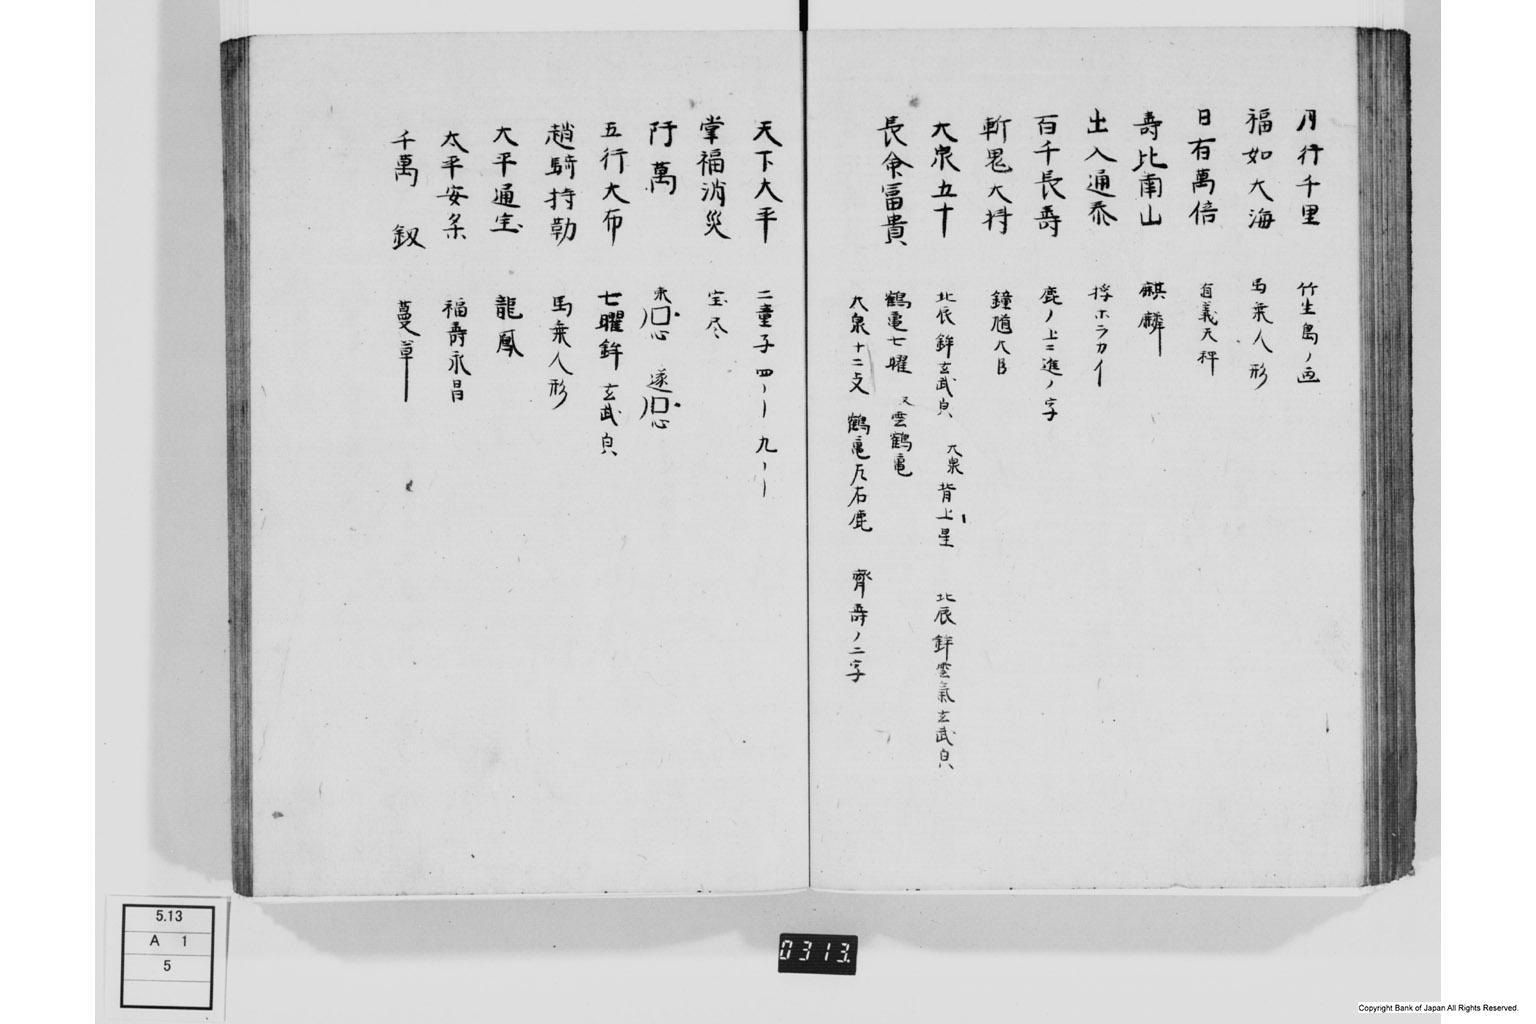 月行千里　竹生島ノ画
福如大海　馬乗人形
日有萬倍　自義天秤
壽比南山　麒麟
出入通泰　捋ホラカイ
百千長壽　鹿ノ上ニ進ノ字
斬鬼大将　鐘馗
大泉五十　北辰鉾玄武　大泉背上星　北辰鉾雲氣玄武
長命冨貴　鶴亀七曜　又雲鶴亀
大泉十二支　鶴亀石鹿　齊壽ノ二字
天下大平　二童子四〻〡九〻〡
掌福消災　宝尽
萬
五行大布　七曜鉾玄武
趙騎持勒　馬乗人形
大平通宝　龍鳳
太平安楽　福壽永昌
千萬　釼　蔓草
5.13
A 1
5
0313.
Copyright Bank of Japan All Rights Reserved.